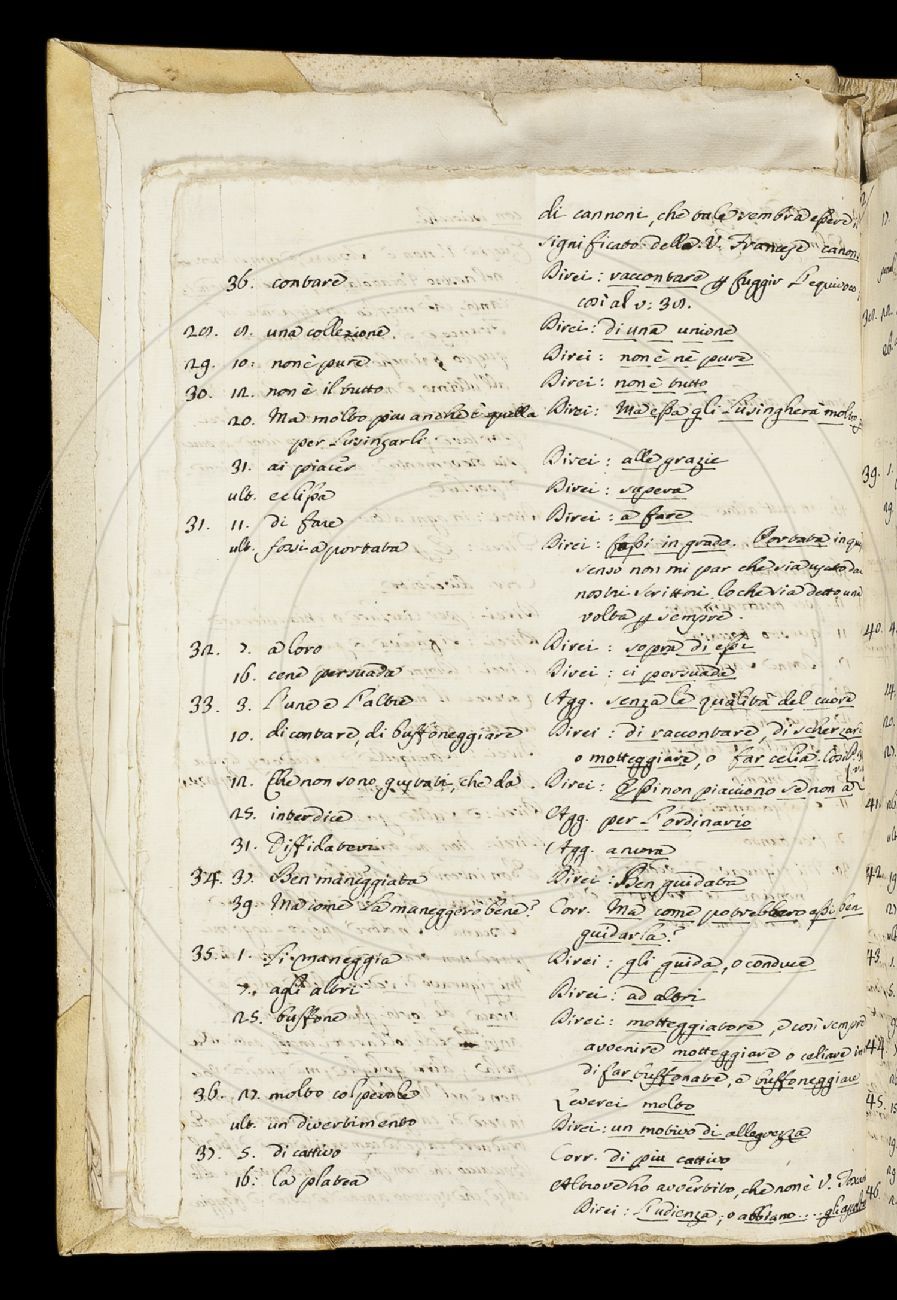 di cannoni, che tale sembra essere
significato della V. Francese canon
36. contare Direi: raccontare p fuggir l'equivoco,
così al v: 38.
28. 8. una collezione. Direi: di una unione
29. 10. non è pure Direi: non è nè pure
30. 12. non è il tutto Direi: non è tutto
20. Ma molto più anche è quella Direi: Ma essa gli lusingherà molto
per lusingarli
31. ai piacer Direi: alle grazie
ult. eclissa Direi: sapeva
31. 11. di fare Direi: a fare
ult. fossi a portata Direi: fossi in grado. Portata in qu
senso non mi par che sia usato da
nostri scrittori. lo che sia detto una
volta p sempre.
32. 7. a loro Direi: sopra di essi
16. cene persuada Direi: ci persuade
33. 3. l'une e l'altre Agg. senza le qualità del cuore
10. di contare, di buffoneggiare Direi: di raccontare, di scherzar
o motteggiare, o far celia. Così
12. Che non sono gustati, che da Direi: Essi non piacciono se non a
25. interdice Agg. per l'ordinario
31. Diffidatevi Agg. ancora
34. 37. Ben maneggiata Direi: Ben guidata
39. Ma come la maneggerò bene? Corr. Ma come potrebbero essi ben
guidarla?
35. 1. Si maneggia Direi: gli guida, o conduce
7. agli altri Direi: ad altri
25. buffone Direi: motteggiatore, e così sempre
avvenire motteggiare o celiare in
di far buffonate, o buffoneggiare
36. 27. molto colpevole Leverei molto
ult. un divertimento Direi: un motivo di allegrezza
37. 5. di cattivo Corr. di più cattivo
16. la platea Altrove ho avvertito, che non è V. Tosca
Direi: l'udienza, o abbiano .... gli